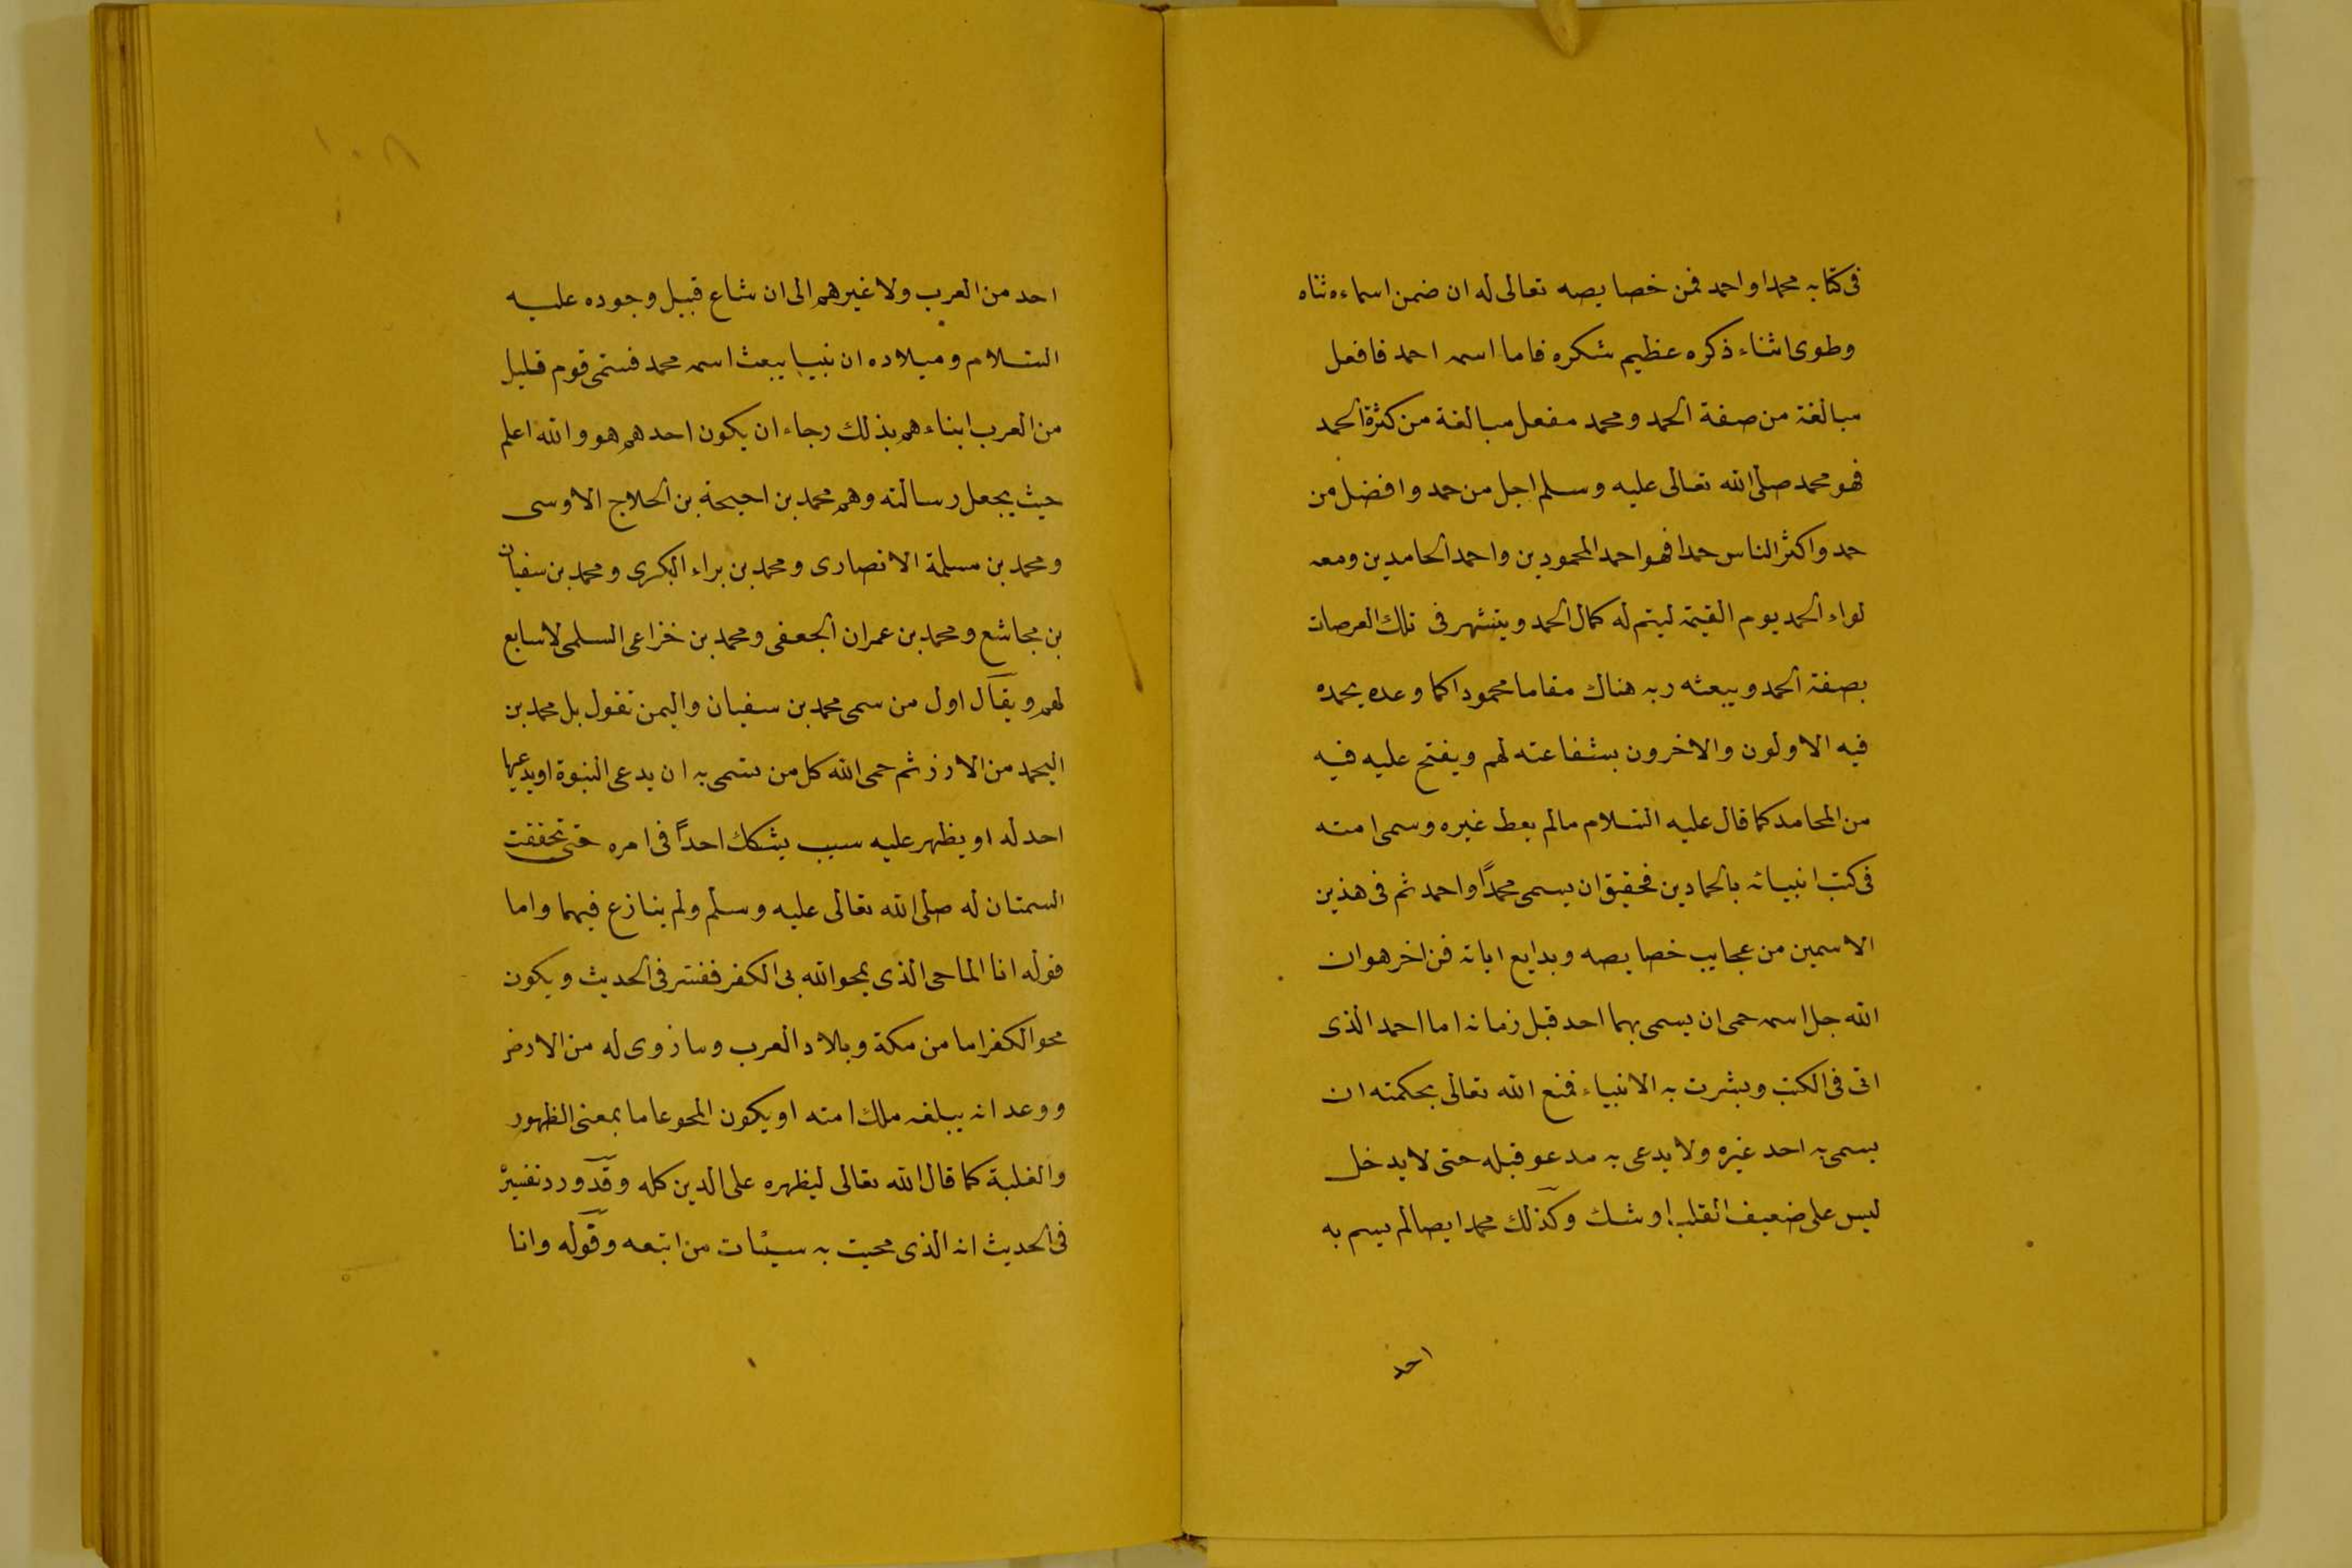 فى كتابه محمدا واحمد فمن خصايصه تعالى له ان ضمن اسماءه ثناه
وطوى اثناء ذكره عظيم شكره فاما اسمه احمد فافعل
مبالغة من صفة الحمد ومحمد مفعل مبالغة من كثرة الحمد
فهو محمد صلى الله تعالى عليه وسلم اجل من حمد وافضل من
حمد واكثر الناس حمدا فهو احمد المحمودين واحمد الحامدين ومعه
لواء الحمد يوم القيمة ليتم له كمال الحمد ويتشهر فى تلك العرصات
بصفة الحمد ويبعثه ربه هناك مقاما محمودا كما وعده يحمده
فيه الاولون والاخرون بشفاعته لهم ويفتح عليه فيه
من المحامد كما قال عليه السلام مالم يعط غيره وسمى امته
فى كتب انبيائه بالحمادين فحقيق ان يسمى محمدًا واحمد ثم فى هذين
الاسمين من عجايب خصايصه وبدايع اياته فن اخر هو ان
الله جل اسمه حمى ان يسمى بهما احد قبل زمانه اما احمد الذى
اتى فى الكتب وبشرت به الانبياء فمنع الله تعالى بحكمته ان
يسمى به احد غيره ولا يدعى به مدعو قبله حتى لا يدخل
لبس على ضعيف القلب او شك وكذلك محمد ايضا لم يسم به
احد
١٠٨
احد من العرب ولا غيرهم الى ان شاع قبيل وجوده عليه
السلام وميلاده ان نبيا يبعث اسمه محمد فسمى قوم قليل
من العرب ابناءهم بذلك رجاء ان يكون احدهم هو والله اعلم
حيث يجعل رسالته وهم محمد بن احيحة بن الحلاج الاوسى
ومحمد بن مسلمة الانصارى ومحمد بن براء البكرى ومحمد بن سفيان
بن مجاشع ومحمد بن عمران الجعفى ومحمد بن خزاعى السلمى لا سابع
لهم ويقال اول من سمى محمد بن سفيان واليمن تقول بل محمد بن
اليحمد من الازد ثم حمى الله كل من سمى به ان يدعى النبوة او يدعيها
احد له او يظهر عليه سبب يشكك احدًا فى امره حتى تحققت
السمتان له صلى الله تعالى عليه وسلم ولم ينازع فيهما واما
قوله انا الماحى الذى يمحو الله بى الكفر ففسر فى الحديث ويكون
محو الكفر اما من مكة وبلاد العرب وما زوى له من الارض
ووعد انه يبلغه ملك امته او يكون المحو عاما بمعنى الظهور
والغلبة كما قال الله تعالى ليظهره على الدين كله وقد ورد تفسيره
فى الحديث انه الذى محيت به سيئات من اتبعه وقوله وانا